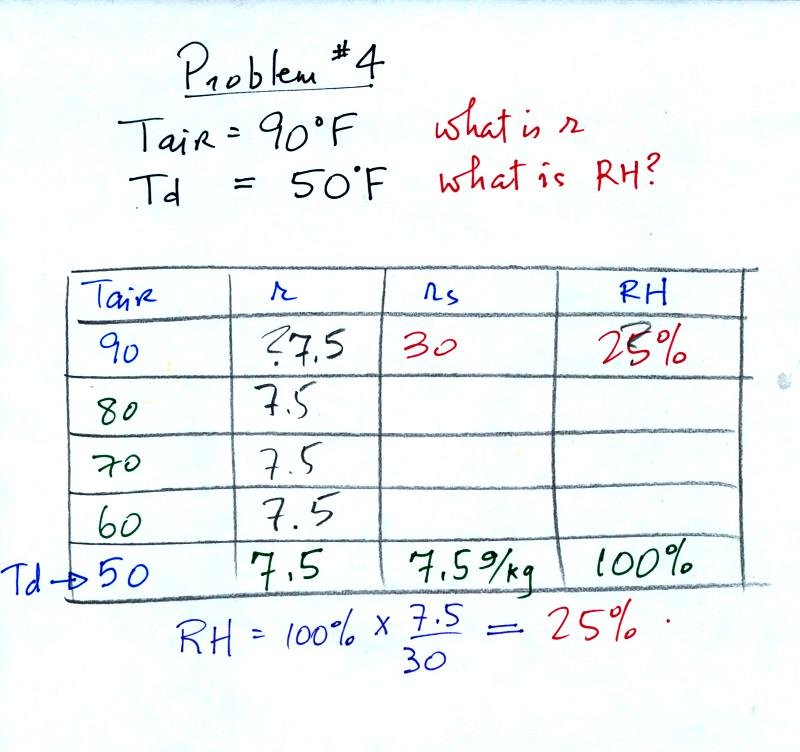 Problem #4
Tair = 90°F what is r
Td = 50°F what is RH?
Tair r rs RH
90 ?7.5 30 25%
80 7.5
70 7.5
60 7.5
Td → 50 7.5 7.5g/kg 100%
RH = 100% × 7.5/30 = 25%.